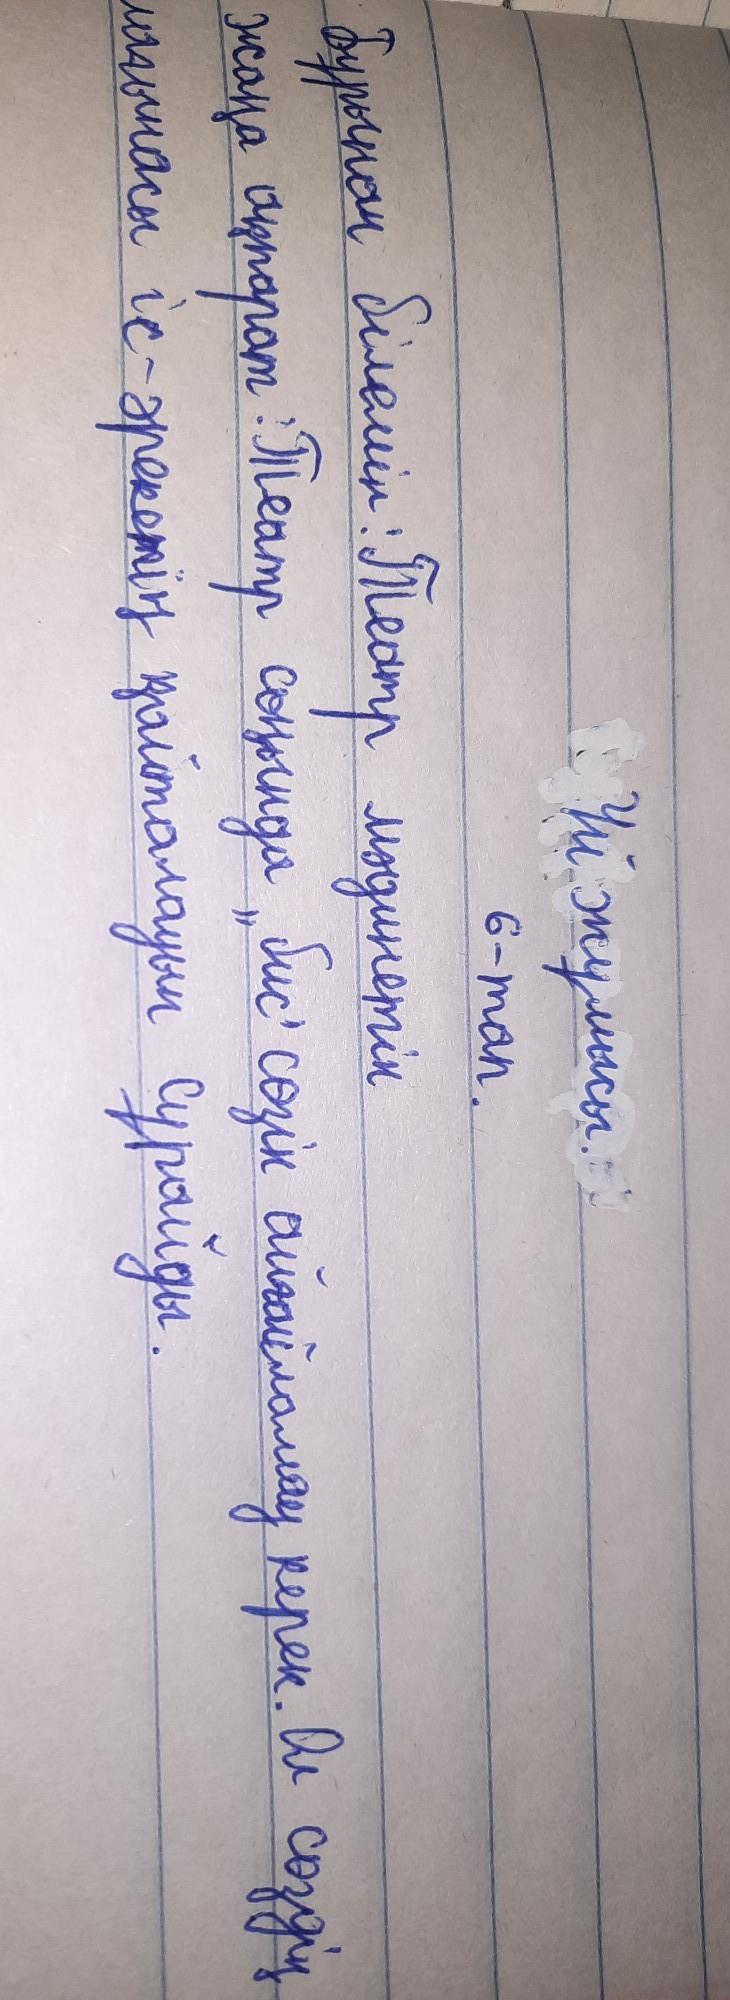 Үй жұмысы.
6-тап.
Бұрыннан білемін: Театр мәдинетін
жаңа ақпарат: Театр соңында „бис" сөзін айғайламау керек. Ол сөздің
мағынасы іс-әрекетің қайталауын сұрайды.